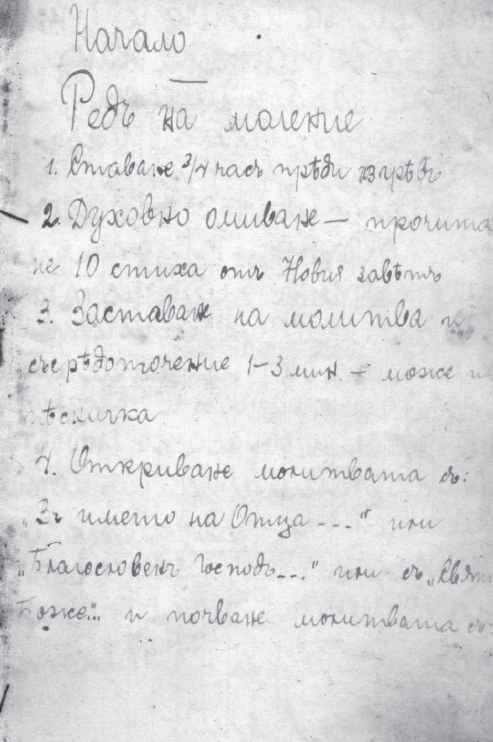 Начало
Редъ на моление
1. Ставане 3/4 часъ прѣди изгрѣвъ
2. Духовно омиване — прочита
не 10 стиха отъ Новия завѣтъ
3. Заставане на молитва и
съсрѣдоточение 1–3 мин. – може и
пѣсничка
4. Откриване молитвата съ:
„Въ името на Отца ---" или
„Благословенъ Господъ---" или съ „Святи
Боже.." и почване молитвата съ